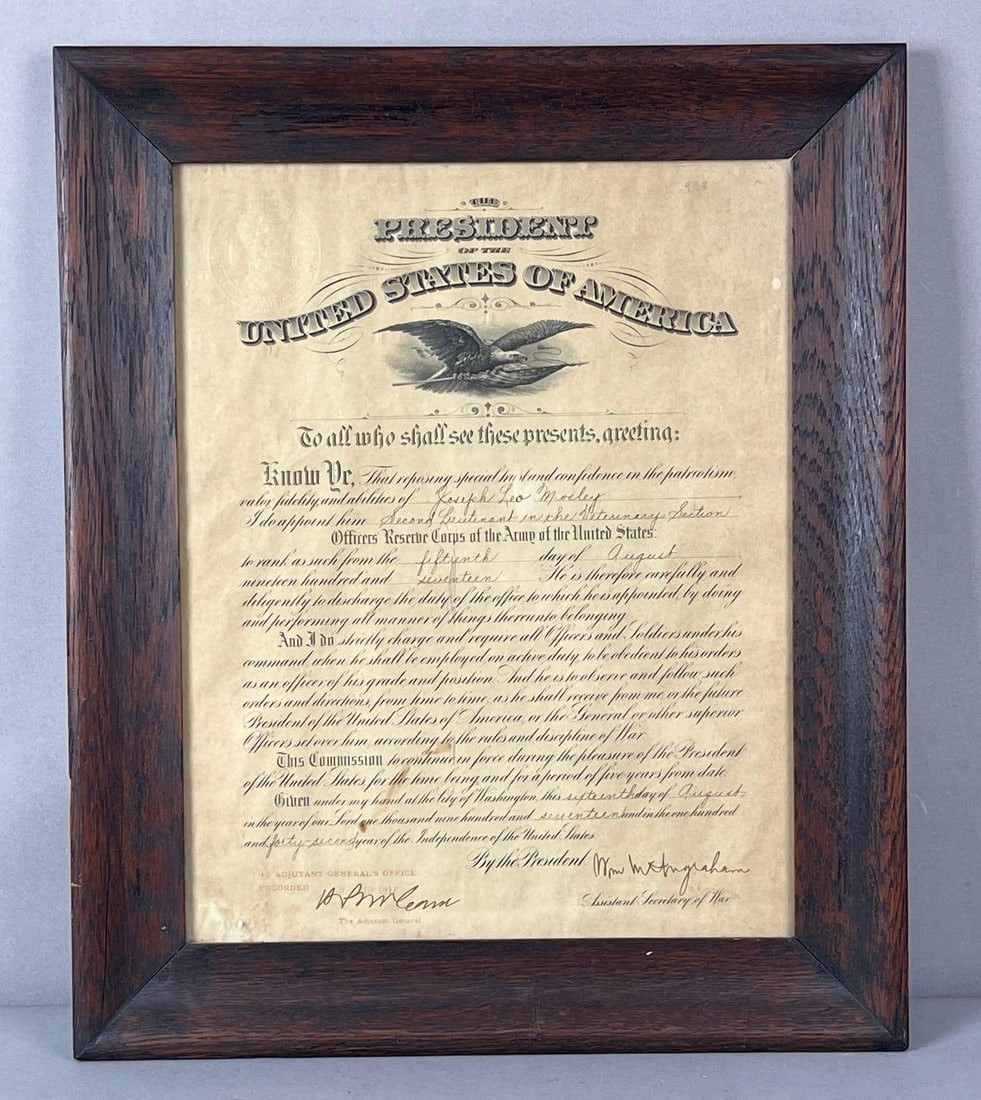 THE
PRESIDENT
OF THE
UNITED STATES OF AMERICA
To all who shall see these presents, greeting:
Know Ye, That reposing special trust and confidence in the patriotism,
valor, fidelity, and abilities of Joseph Leo Mosley
I do appoint him Second Lieutenant in the Veterinary Section
Officers' Reserve Corps of the Army of the United States:
to rank as such from the fifteenth day of August
nineteen hundred and seventeen He is therefore carefully and
diligently to discharge the duty of the office to which he is appointed, by doing
and performing all manner of things thereunto belonging.
And I do strictly charge and require all Officers and Soldiers under his
command, when he shall be employed on active duty, to be obedient to his orders
as an officer of his grade and position. And he is to observe and follow such
orders and directions, from time to time, as he shall receive from me, or the future
President of the United States of America, or the General or other superior
Officers set over him, according to the rules and discipline of War.
This Commission to continue in force during the pleasure of the President
of the United States for the time being and for a period of five years from date
Given under my hand at the City of Washington, this sixteenth day of August
in the year of our Lord one thousand nine hundred and seventeen and in the one hundred
and forty-second year of the Independence of the United States.
By the President Wm M Ingraham
ADJUTANT GENERAL'S OFFICE
RECORDED 1917
Assistant Secretary of War
The Adjutant General